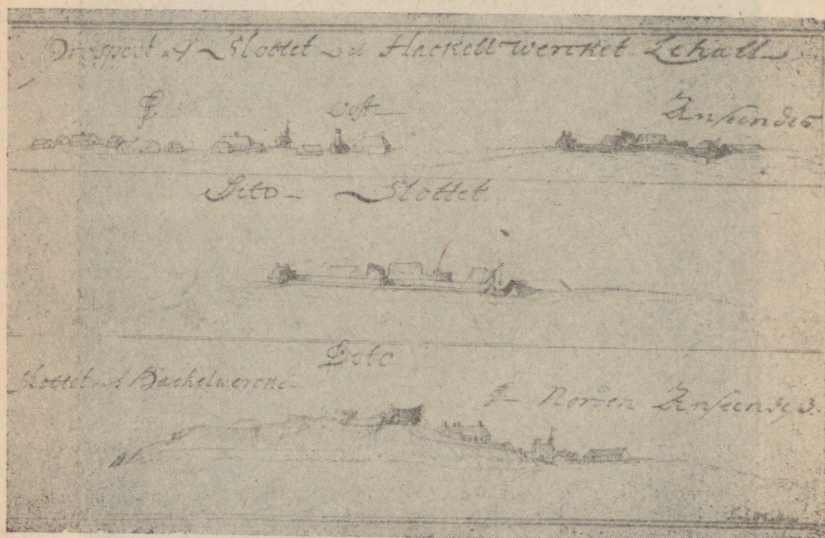 Prospect af Slottet och Hackellwercket Lehall
Wäst
Anseendes
Dito Slottet
Dito
Slottet och Hackelwercke
Norden Anseendes.